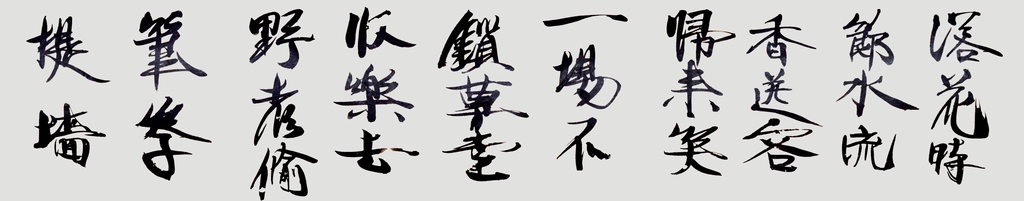 落花時
節水流
香送客
帰来笑
一場不
鎖草堂
收樂去
野老偷
筆学
提墻